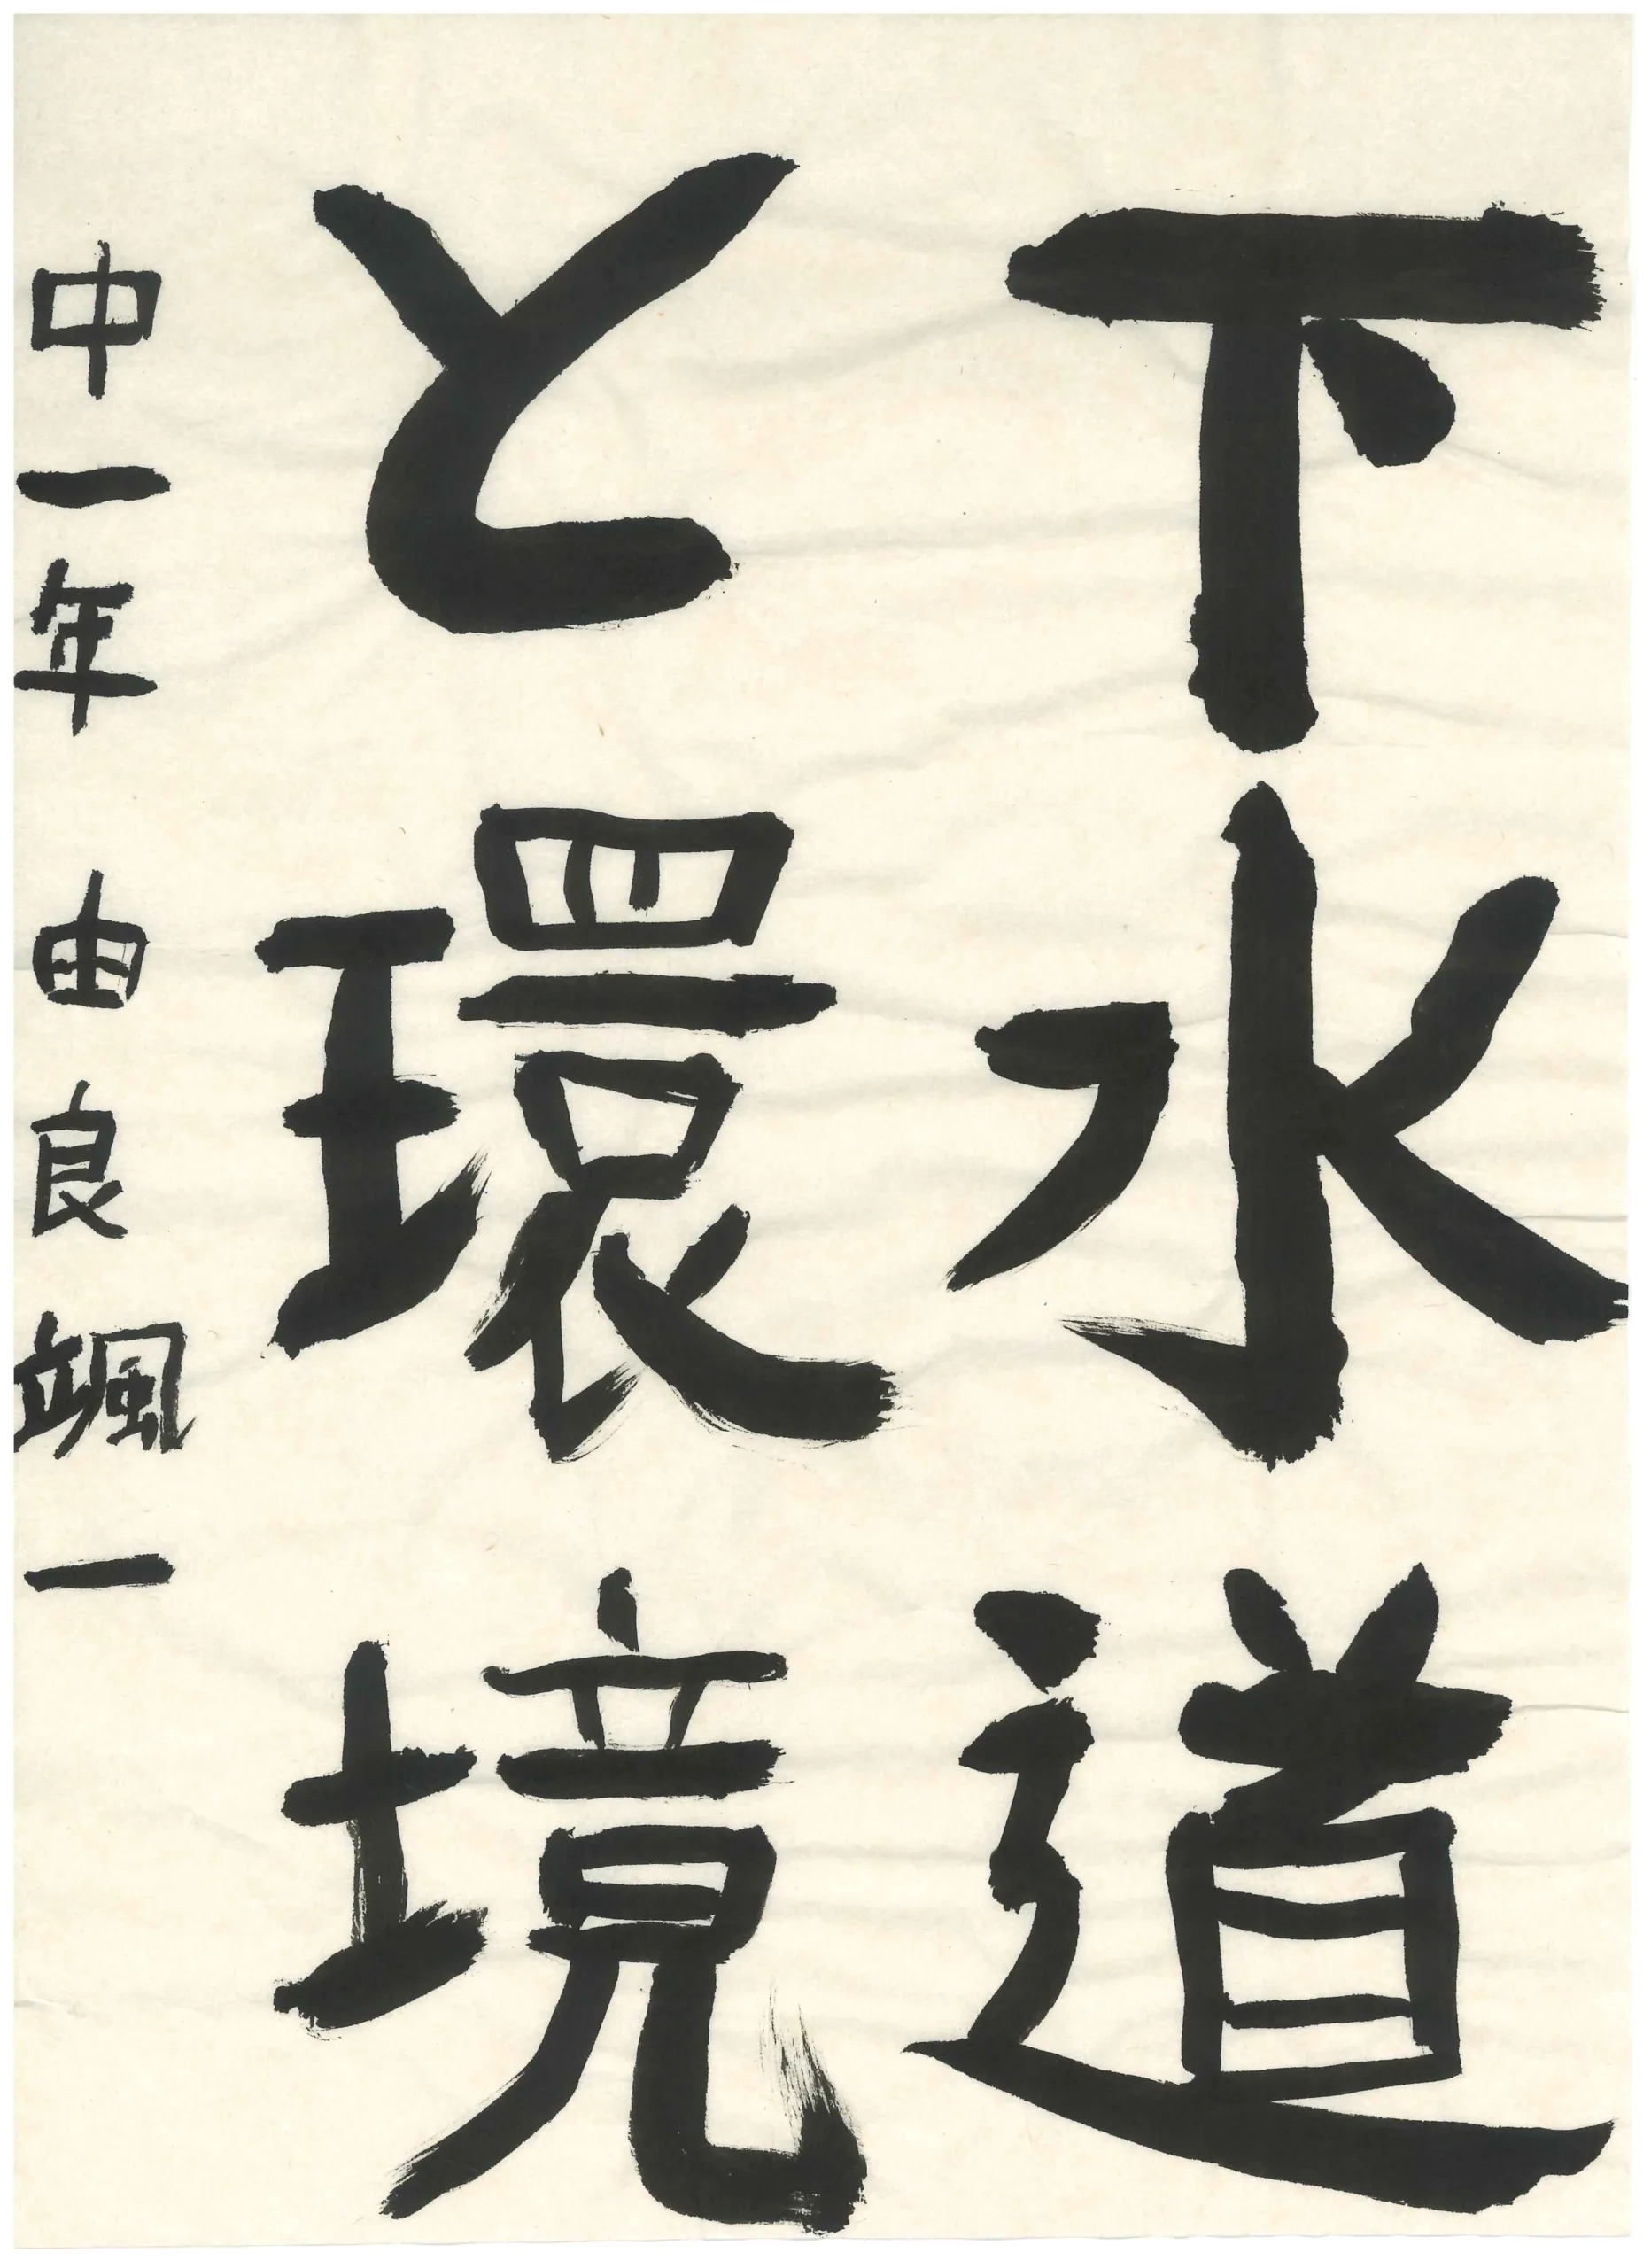 下水道
と環境
中一年 由良颯一